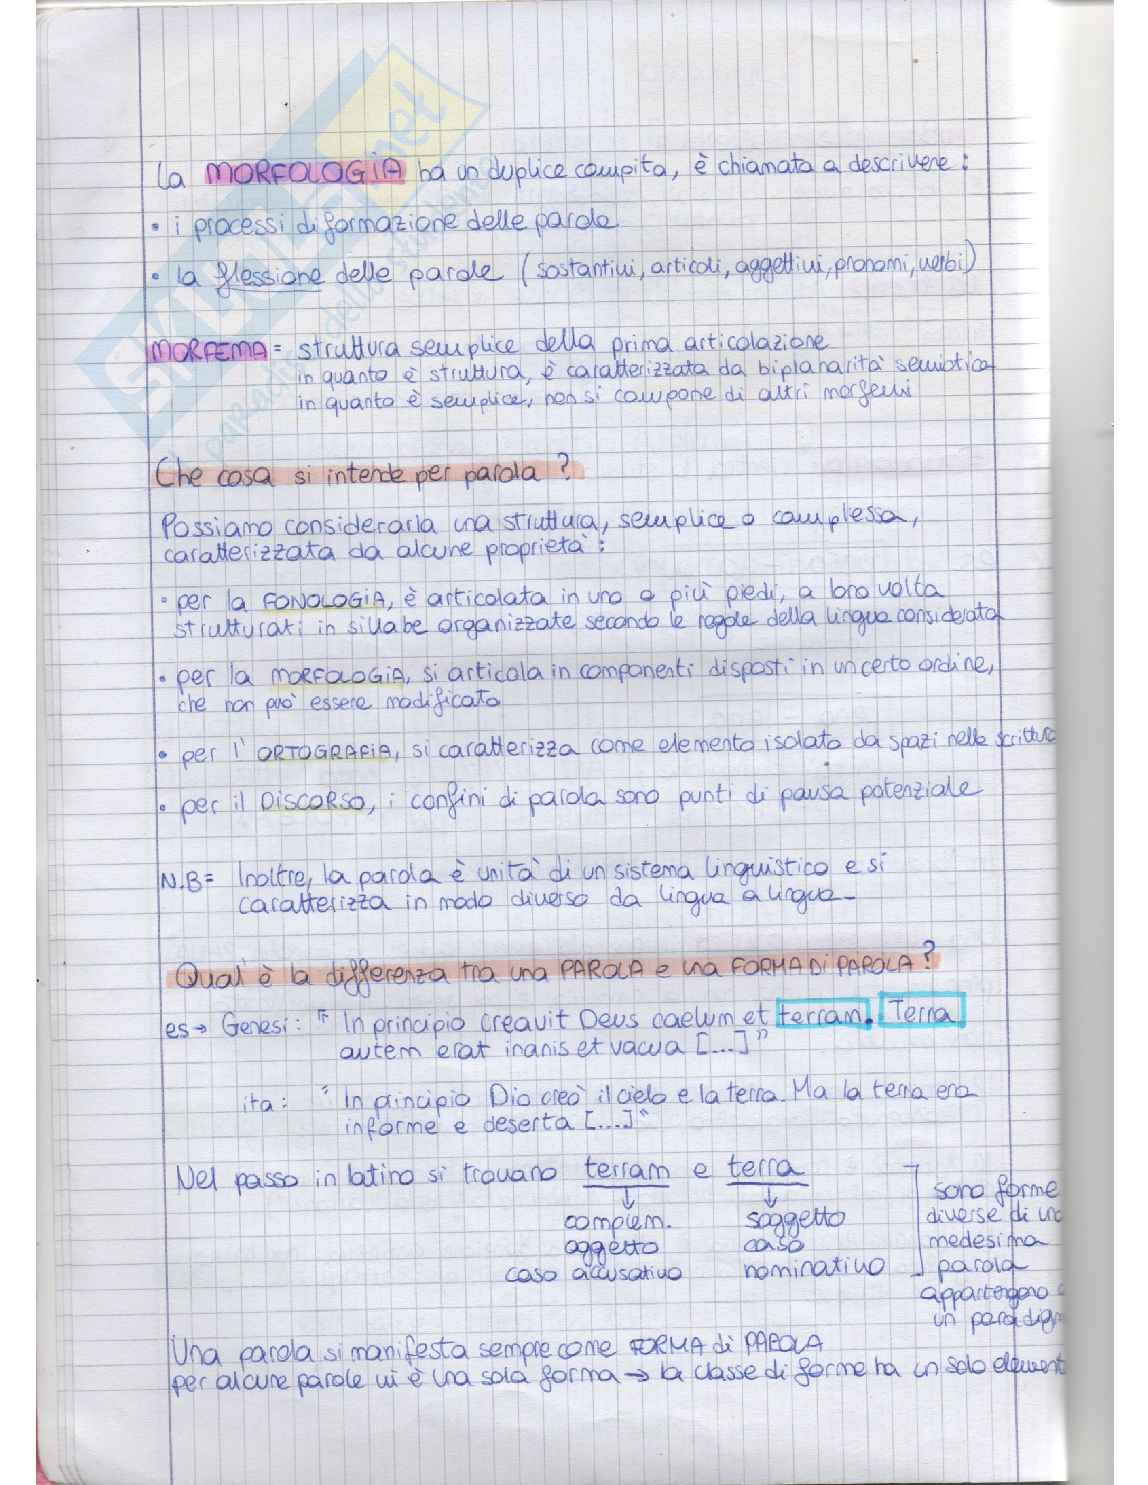 La MORFOLOGIA ha un duplice compito, è chiamata a descrivere:
• i processi di formazione delle parole
• la flessione delle parole (sostantivi, articoli, aggettivi, pronomi, verbi)
MORFEMA = struttura semplice della prima articolazione
in quanto è struttura, è caratterizzata da biplanarità semiotica
in quanto è semplice, non si compone di altri morfemi
Che cosa si intende per parola?
Possiamo considerarla una struttura, semplice o complessa,
caratterizzata da alcune proprietà:
• per la FONOLOGIA, è articolata in uno o più piedi, a loro volta
strutturati in sillabe organizzate secondo le regole della lingua considerata
• per la MORFOLOGIA, si articola in componenti disposti in un certo ordine,
che non può essere modificato
• per l'ORTOGRAFIA, si caratterizza come elemento isolato da spazi nella scrittura
• per il DISCORSO, i confini di parola sono punti di pausa potenziale
N.B = Inoltre, la parola è unità di un sistema linguistico e si
caratterizza in modo diverso da lingua a lingua-
Qual è la differenza tra una PAROLA e una FORMA DI PAROLA?
es → Genesi: "In principio creavit Deus caelum et terram. Terra
autem erat inanis et vacua [...]"
ita: "In principio Dio creò il cielo e la terra. Ma la terra era
informe e deserta [...]"
Nel passo in latino si trovano terram e terra
↓ ↓
complem. soggetto
oggetto caso
caso accusativo nominativo
sono forme
diverse di una
medesima
parola
appartengono
un paradigm
Una parola si manifesta sempre come FORMA di PAROLA
per alcune parole vi è una sola forma → la classe di forme ha un solo element